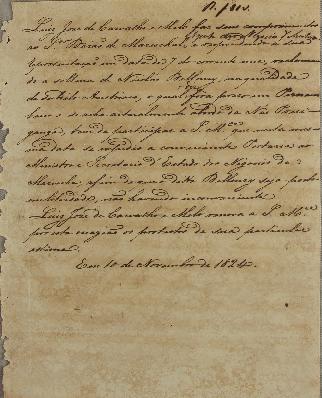 Luiz José de Carvalho e Mello faz seus comprimentos
ao S.r Barão de Mareschal, e respondendo a sua
representação em data de 7 do corrente mez, reclaman-
do a soltura de Nicolas Belloney, na qualidade
de Subdito Austriaco, o qual fora preso em Pernam
buco e se acha actualmente abordo da Náo Pira-
nga, tem de participar a S. M.ce que nesta mes-
ma data se expedio a conveniente Portaria ao
Ministro e Secretario d'Estado dos Negocios da
Marinha, afim de que o dito Belloney seja posto
em liberdade, não havendo inconveniente.
Luiz José de Carvalho e Mello renova a S. M.ce
por esta occasião os protestos de sua particular
estima.
Em 10 de Novembro de 1824.